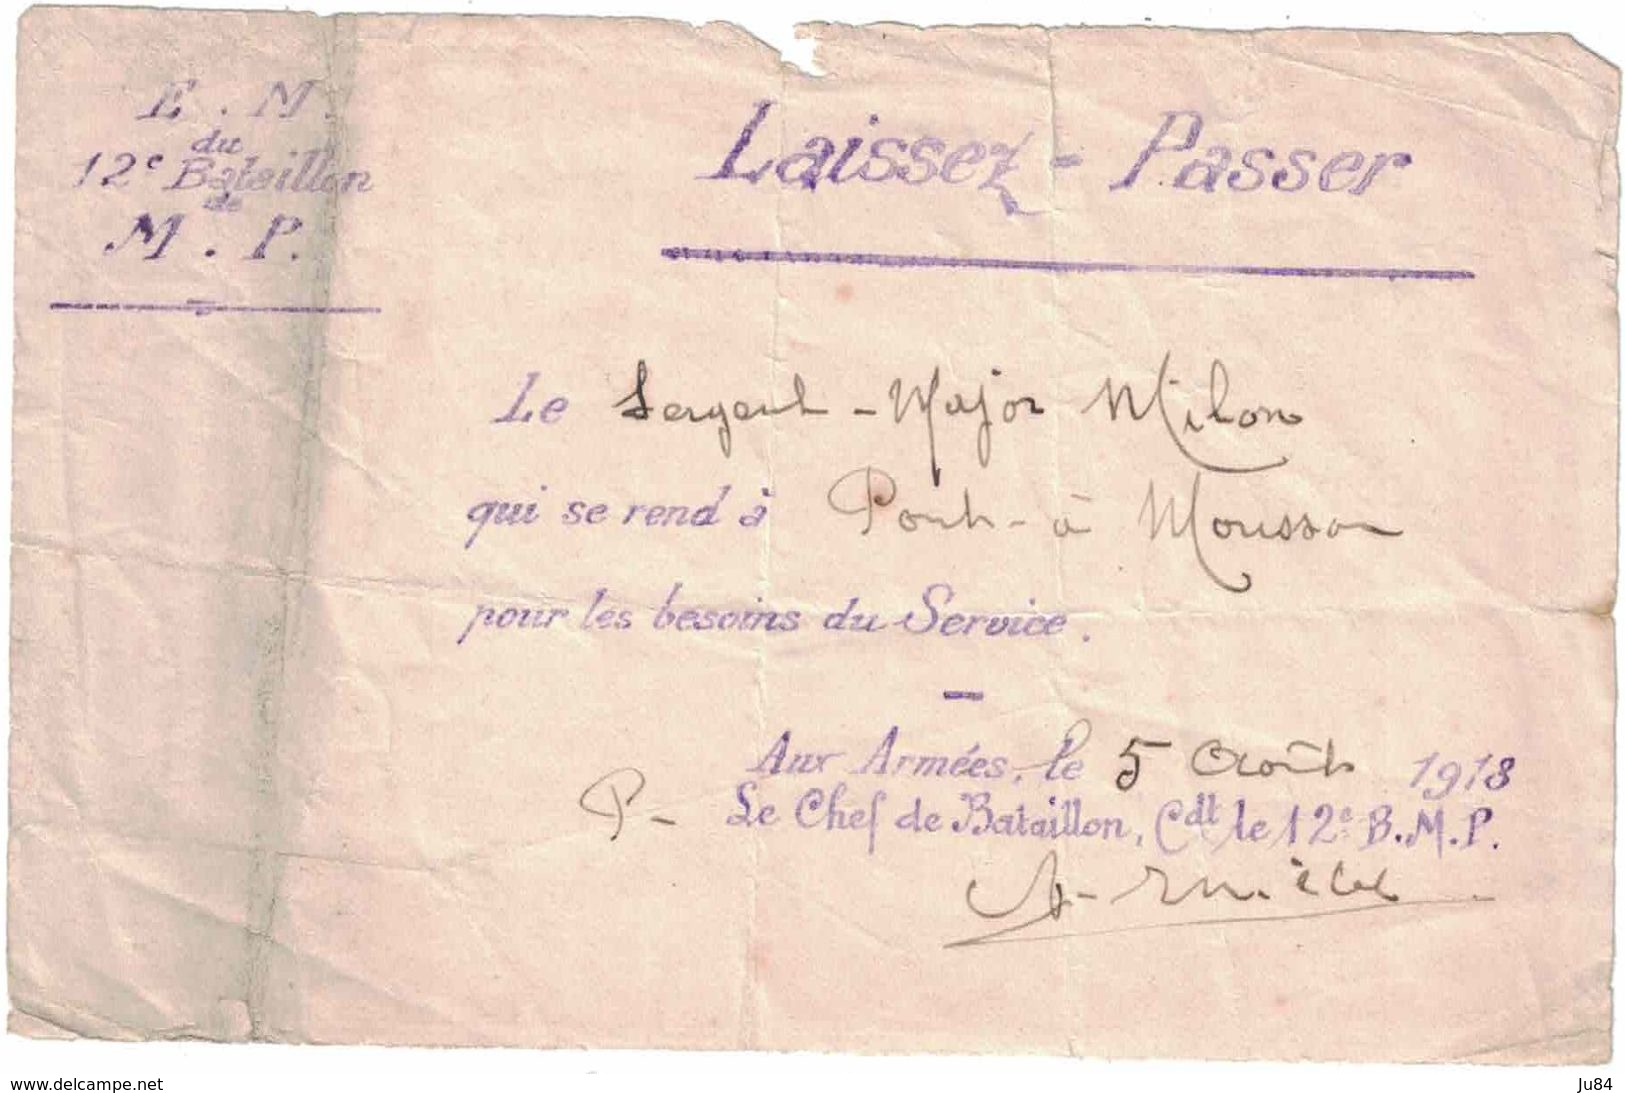 E. M.
du
12e Bataillon
de
M. P.
Laissez-Passer
Le Sergent-Major Milon
qui se rend à Pont-à Mousson
pour les besoins du Service.
Aux Armées, le 5 Août 1918
P- Le Chef de Bataillon, Cdt le 12e B.M.P.
www.delcampe.net
Ju84